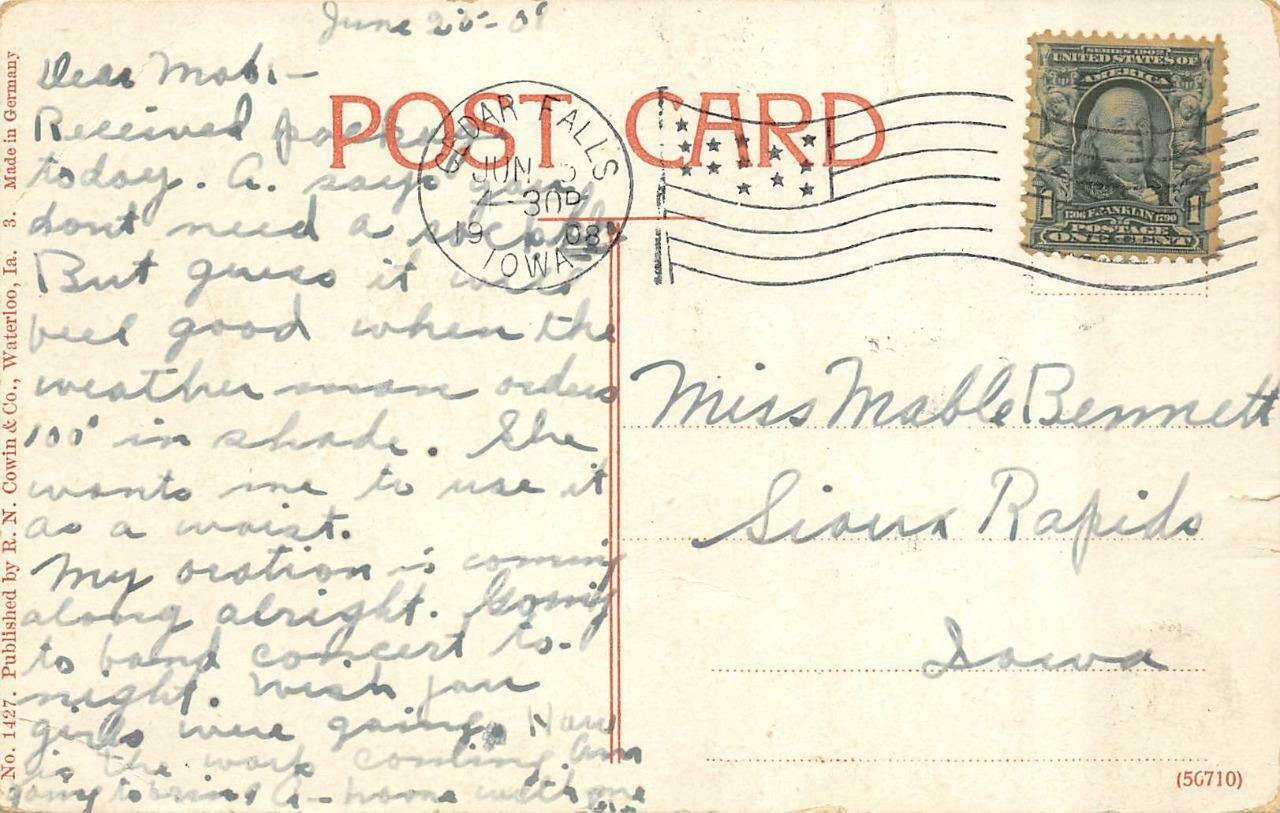 June 23 - 08
Dear Mab. -
Received
today. A. says you
dont need a
But guess it will
feel good when the
weather man orders
100° in shade. She
wants me to use it
as a waist.
My oration is coming
along alright. Going
to band concert to-
night. Wish you
girls were going. How
is the work coming. Am
going to bring A - home with me
POST CARD
CEDAR FALLS
JUN
30P
19 08
IOWA
SERIES 1902
UNITED STATES OF
AMERICA
1706 FRANKLIN 1790
1 1
POSTAGE
ONE CENT
Miss Mable Bennett
Sioux Rapids
Iowa
(56710)
No. 1427. Published by R. N. Cowin & Co., Waterloo, Ia. 3. Made in Germany